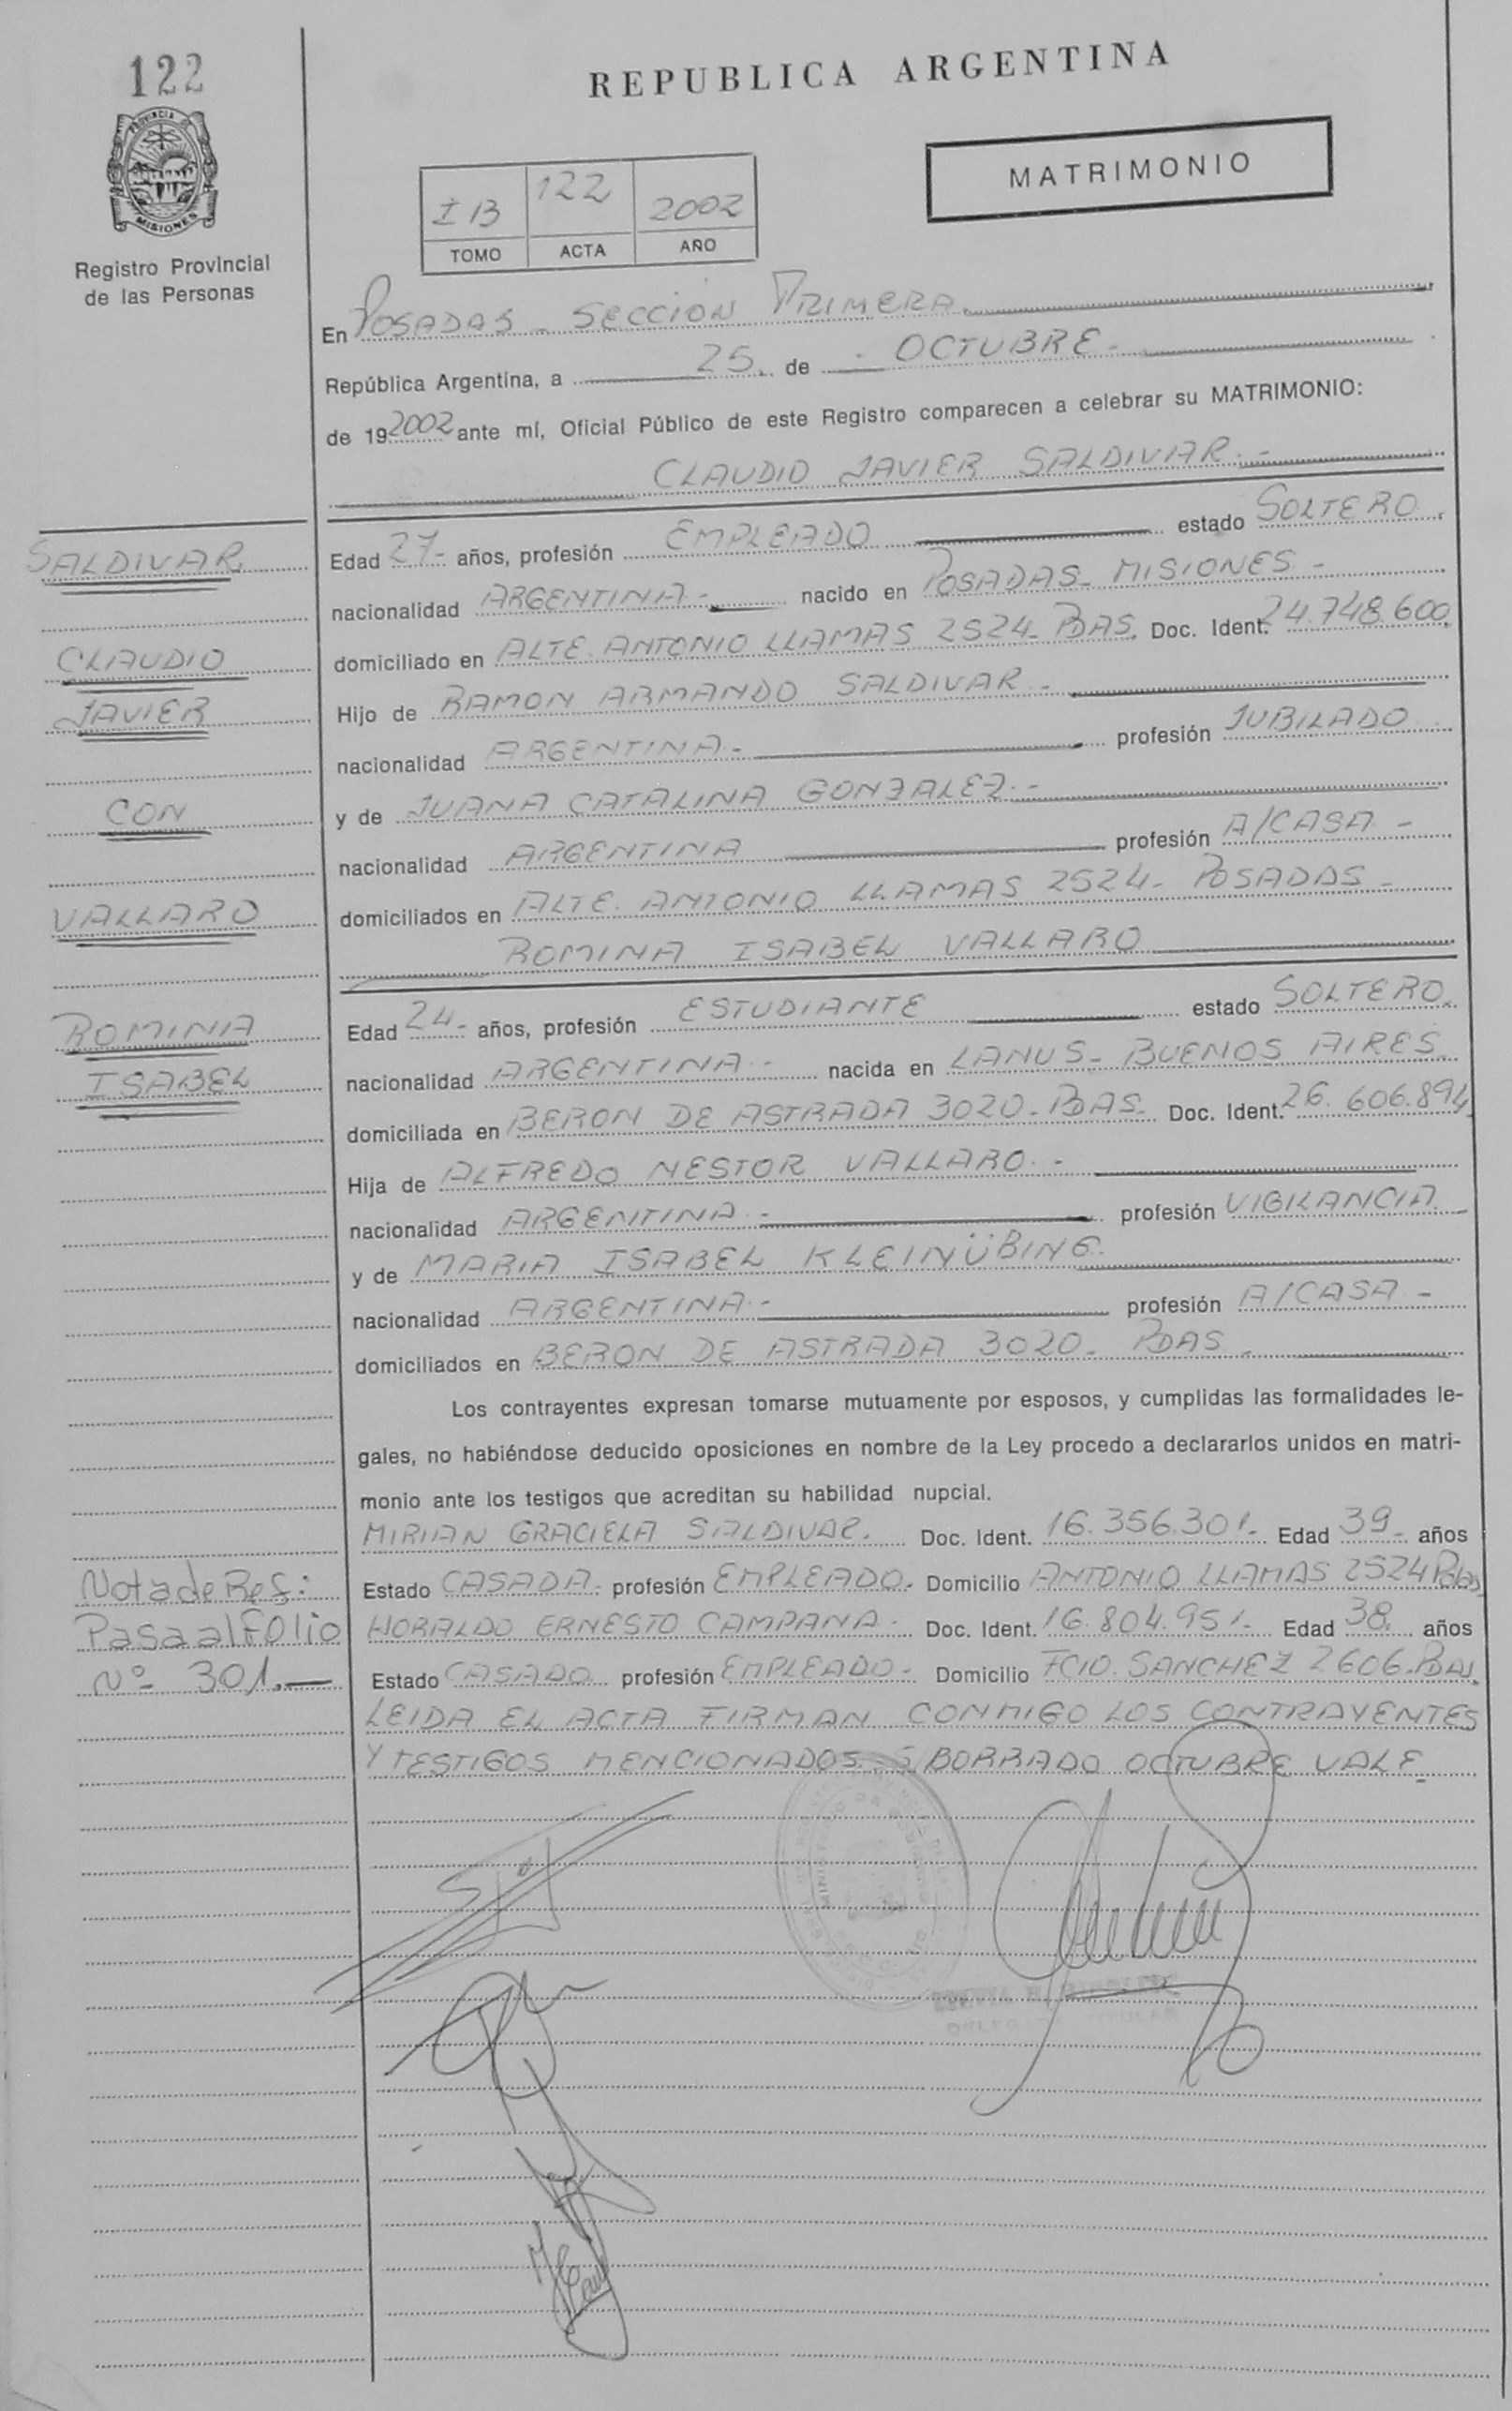 122
PROVINCIA DE
MISIONES
Registro Provincial
de las Personas
REPUBLICA ARGENTINA
MATRIMONIO
I B 122 2002
TOMO ACTA AÑO
En POSADAS - SECCION PRIMERA.
República Argentina, a 25. de - OCTUBRE -
de 192002 ante mí, Oficial Público de este Registro comparecen a celebrar su MATRIMONIO:
CLAUDIO JAVIER SALDIVAR. -
SALDIVAR
CLAUDIO
JAVIER
CON
VALLARO
ROMINA
ISABEL
Edad 27- años, profesión EMPLEADO estado SOLTERO.
nacionalidad ARGENTINA - nacido en POSADAS - MISIONES -
domiciliado en ALTE. ANTONIO LLAMAS 2524 - PDAS. Doc. Ident. 24.748.600
Hijo de RAMON ARMANDO SALDIVAR -
nacionalidad ARGENTINA - profesión JUBILADO
y de JUANA CATALINA GONZALEZ. -
nacionalidad ARGENTINA profesión A/CASA -
domiciliados en ALTE. ANTONIO LLAMAS 2524 - POSADAS -
ROMINA ISABEL VALLARO
Edad 24- años, profesión ESTUDIANTE estado SOLTERO.
nacionalidad ARGENTINA - nacida en LANUS - BUENOS AIRES.
domiciliada en BERON DE ASTRADA 3020 - PDAS. Doc. Ident. 26.606.894
Hija de ALFREDO NESTOR VALLARO. -
nacionalidad ARGENTINA - profesión VIGILANCIA
y de MARIA ISABEL KLEINÜBING.
nacionalidad ARGENTINA - profesión A/CASA -
domiciliados en BERON DE ASTRADA 3020 - PDAS.
Los contrayentes expresan tomarse mutuamente por esposos, y cumplidas las formalidades le-
gales, no habiéndose deducido oposiciones en nombre de la Ley procedo a declararlos unidos en matri-
monio ante los testigos que acreditan su habilidad nupcial.
MIRIAN GRACIELA SALDIVAR. Doc. Ident. 16.356.301- Edad 39- años
Estado CASADA - profesión EMPLEADO - Domicilio ANTONIO LLAMAS 2524 Pdas
HORALDO ERNESTO CAMPANA - Doc. Ident. 16.804.951- Edad 38. años
Estado CASADO profesión EMPLEADO - Domicilio FCIO. SANCHEZ 2606 - PDAS.
LEIDA EL ACTA FIRMAN CONMIGO LOS CONTRAYENTES
Y TESTIGOS MENCIONADOS - S/BORRADO OCTUBRE VALE -
Nota de Ref:
Pasa al Folio
Nº 301.-